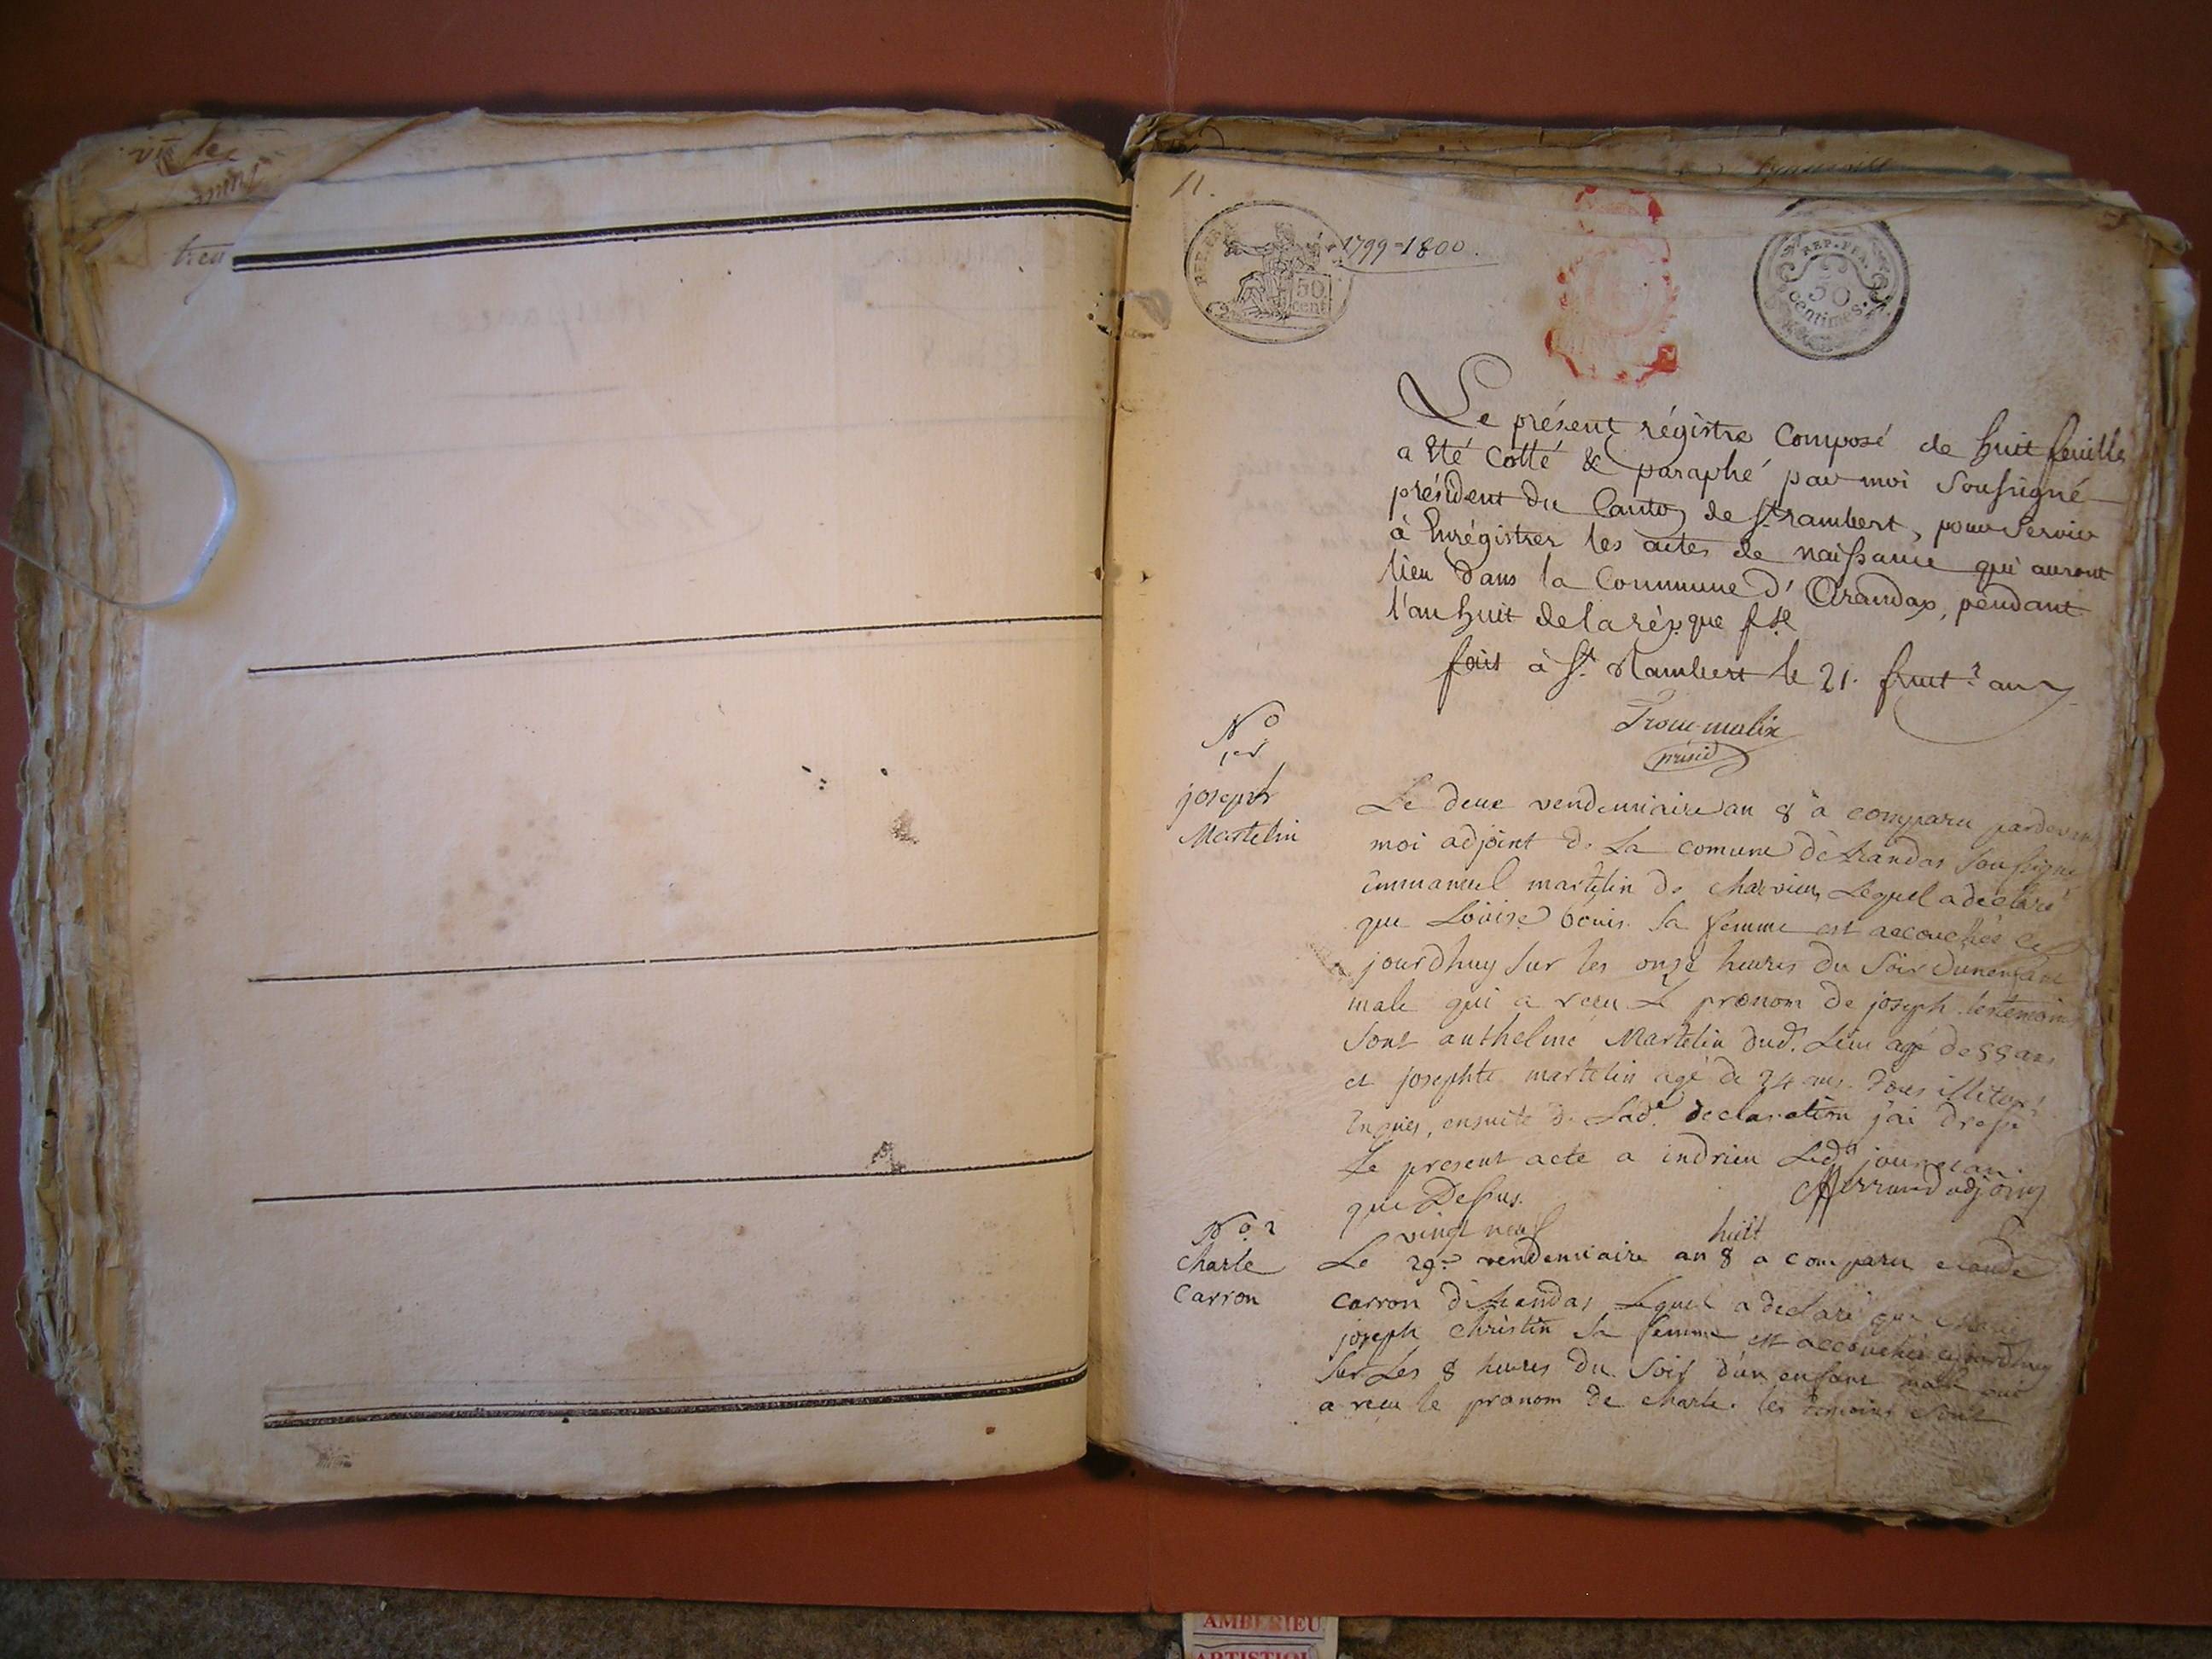 tieu
11.
1799=1800.
REP. FRA.
50
cent
REP. FRA.
50
centimes
Le présent régistre Composé de huit feuilles
a été Cotté & paraphé par moi Soussigné
président du Canton de St. rambert, pour Servir
à Enrégistrer les actes de naissance qui auront
lieu dans la Commune d'Arandas, pendant
l'an huit de la rép.que fse
fait à St. Rambert le 21. fruct.r an 7
présid
No
1er
joseph
Martelin
Le deux vendemiaire an 8 a comparu pardevant
moi adjoint de La comune d'Arandas Soussigné
Emmanuel martelin de charvieu Lequel a déclaré
que Loüise bouis sa femme est accouchée ce
jourdhuy sur les onze heures du Soir dun enfant
male qui a recu Le prenom de joseph. les temoins
sont anthelme Martelin dud. Lieu agé de 55 ans
et josephte martelin agé de 24 ans. tous illiteré
Enquis, ensuite de Lade. declaration j'ai dressé
Le present acte a indrieu Led. jour et an.
que Dessus.
Ferrand adjoint
No. 2
Charle
Carron
vingt neuf huit
Le 29e vendemiaire an 8 a comparu claude
Carron d'Arandas Lequel a declaré que marie
joseph christin sa femme est accouchée cejourdhuy
sur Les 8 heures du Soir d'un enfant male qui
a recu le prenom de charle. les temoins sont
AMBERIEU